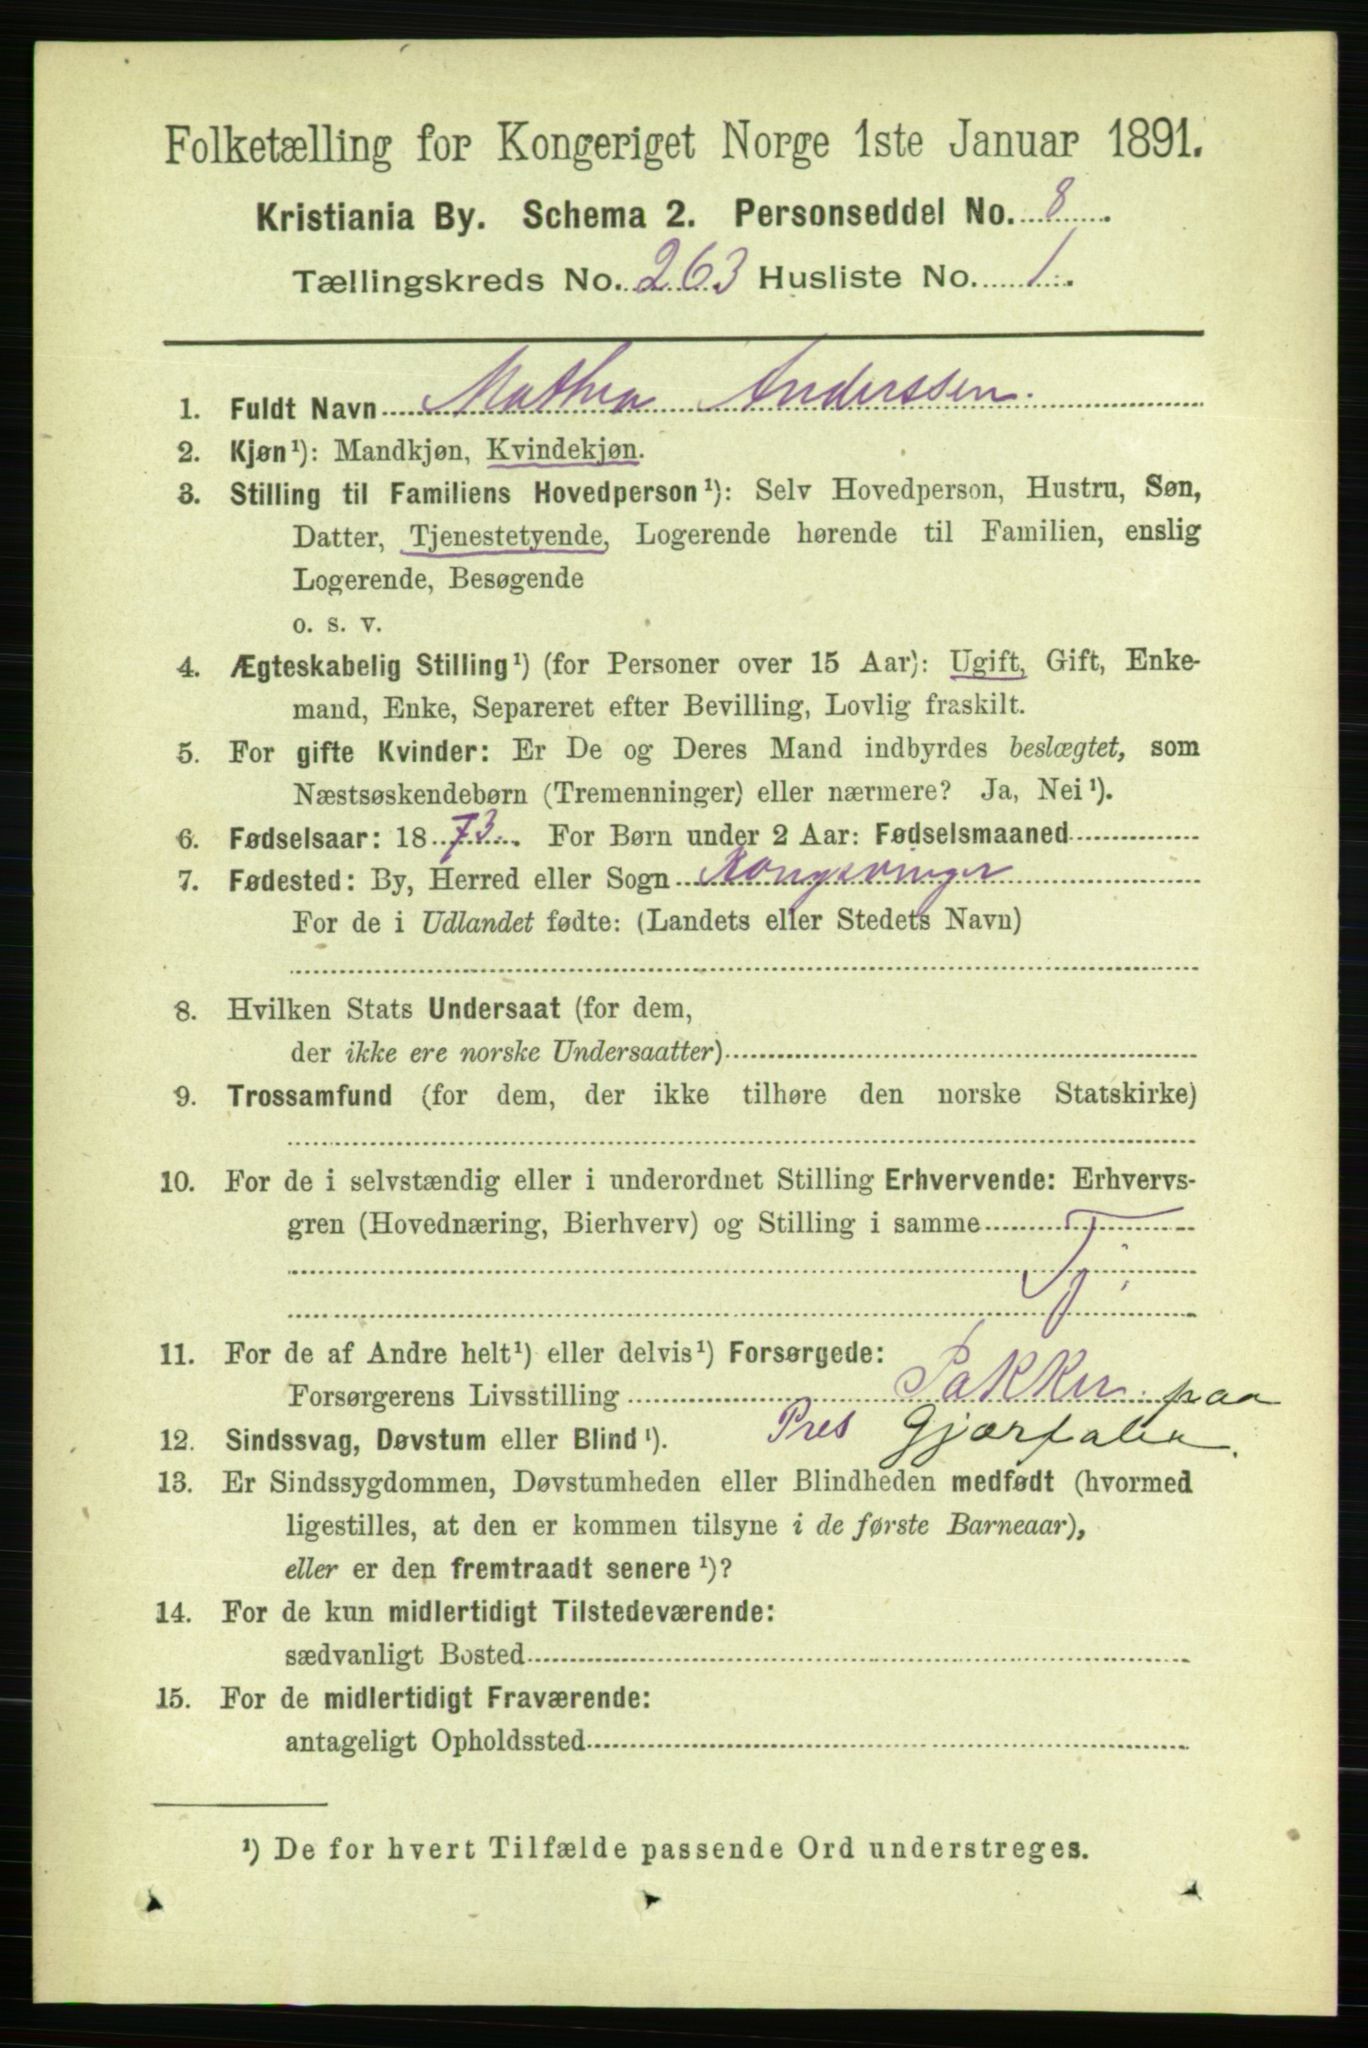 Folketælling for Kongeriget Norge 1ste Januar 1891.
Kristiania By. Schema 2. Personseddel No. 8.
Tællingskreds No. 263 Husliste No. 1.
1. Fuldt Navn Mathea Anderssen.
2. Kjøn¹): Mandkjøn, Kvindekjøn.
3. Stilling til Familiens Hovedperson¹): Selv Hovedperson, Hustru, Søn,
Datter, Tjenestetyende, Logerende hørende til Familien, enslig
Logerende, Besøgende
o. s. v.
4. Ægteskabelig Stilling¹) (for Personer over 15 Aar): Ugift, Gift, Enke-
mand, Enke, Separeret efter Bevilling, Lovlig fraskilt.
5. For gifte Kvinder: Er De og Deres Mand indbyrdes beslægtet, som
Næstsøskendebørn (Tremenninger) eller nærmere? Ja, Nei¹).
6. Fødselsaar: 1873. For Børn under 2 Aar: Fødselsmaaned
7. Fødested: By, Herred eller Sogn Kongsvinger
For de i Udlandet fødte: (Landets eller Stedets Navn)
8. Hvilken Stats Undersaat (for dem,
der ikke ere norske Undersaatter)
9. Trossamfund (for dem, der ikke tilhøre den norske Statskirke)
10. For de i selvstændig eller i underordnet Stilling Erhvervende: Erhvervs-
gren (Hovednæring, Bierhverv) og Stilling i samme
Tj.
11. For de af Andre helt¹) eller delvis¹) Forsørgede:
Forsørgerens Livsstilling Pakker paa
12. Sindssvag, Døvstum eller Blind¹). Pres
13. Er Sindssygdommen, Døvstumheden eller Blindheden medfødt (hvormed
ligestilles, at den er kommen tilsyne i de første Barneaar),
eller er den fremtraadt senere¹)?
14. For de kun midlertidigt Tilstedeværende:
sædvanligt Bosted
15. For de midlertidigt Fraværende:
antageligt Opholdssted
¹) De for hvert Tilfælde passende Ord understreges.